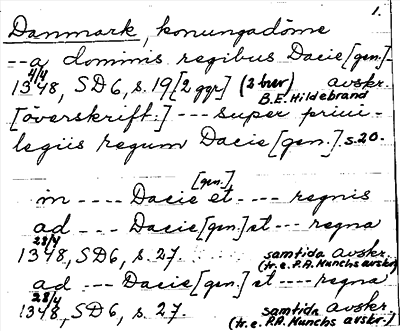 1.
Danmark, konungadöme
-- a dominis regibus Dacie [gen.]
4/4
1348, SD6, s. 19 [2 ggr] (2 brev) avskr.
B.E. Hildebrand
[överskrift:] --- super privi-
legiis regum Dacie [gen.] s. 20.
in ---- Dacie [gen.] et ---- regnis
ad --- Dacie [gen.] et --- regna
28/4
1348, SD6, s. 27. samtida avskr.
(tr. e. P.A. Munchs avskr.)
ad --- Dacie [gen.] et ---- regna
28/4
1348, SD6, s. 27. samtida avskr.
(tr. e. P.A. Munchs avskr.)